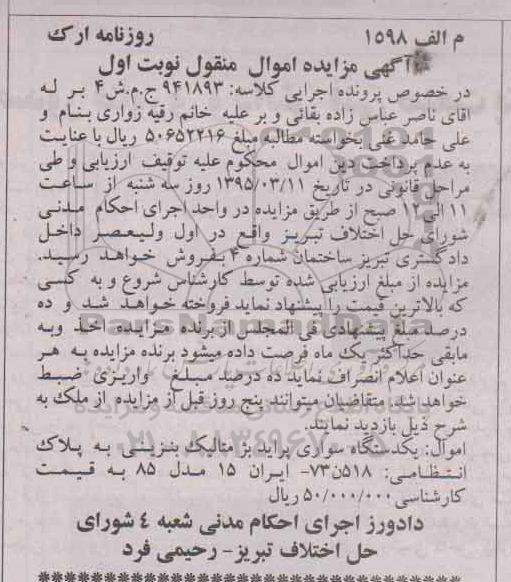 م الف ۱۵۹۸ روزنامه ارک
آگهی مزایده اموال منقول نوبت اول
در خصوص پرونده اجرایی کلاسه: ۹۴۱۸۹۳ ج.م.ش۴ بر له
اقای ناصر عباس زاده بقائی و بر علیه خانم رقیه زواری بنام و
علی حامد غنی بخواسته مطالبه مبلغ ۵۰۶۵۲۲۱۶ ریال با عنایت
به عدم پرداخت دین اموال محکوم علیه توقیف ارزیابی و طی
مراحل قانونی در تاریخ ۱۳۹۵/۰۳/۱۱ روز سه شنبه از ساعت
۱۱ الی ۱۲ صبح از طریق مزایده در واحد اجرای احکام مدنی
شورای حل اختلاف تبریز واقع در اول ولیعصر داخل
دادگستری تبریز ساختمان شماره ۴ بفروش خواهد رسید.
مزایده از مبلغ ارزیابی شده توسط کارشناس شروع و به کسی
که بالاترین قیمت را پیشنهاد نماید فروخته خواهد شد و ده
درصد مبلغ پیشنهادی فی المجلس از برنده مزایده اخذ وبه
مابقی حداکثر یک ماه فرصت داده میشود برنده مزایده به هر
عنوان اعلام انصراف نماید ده درصد مبلغ واریزی ضبط
خواهد شد. متقاضیان میتوانند پنج روز قبل از مزایده از ملک به
شرح ذیل بازدید نمایند.
اموال: یکدستگاه سواری پراید بژ متالیک بنزینی به پلاک
انتظامی: ۵۱۸ن۷۳- ایران ۱۵ مدل ۸۵ به قیمت
کارشناسی ۵۰/۰۰۰/۰۰۰ ریال
دادورز اجرای احکام مدنی شعبه ۴ شورای
حل اختلاف تبریز- رحیمی فرد
ParsNamadData
۰۲۱-۸۸۳۴۹۶۷۰